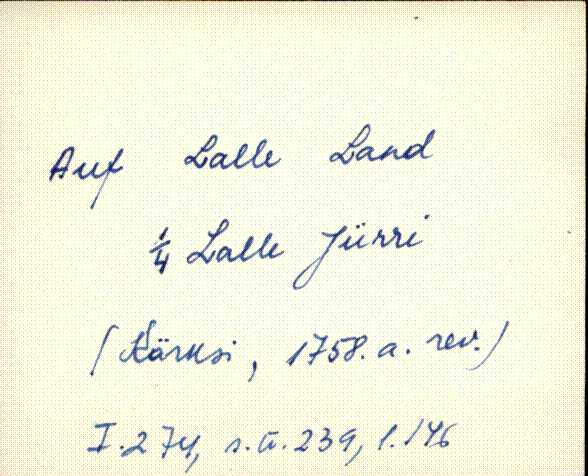 Auf Lalle Land
1/4 Lalle Jürri
(Kärksi, 1758. a. rev.)
I. 274, s.ü. 239, l. 146